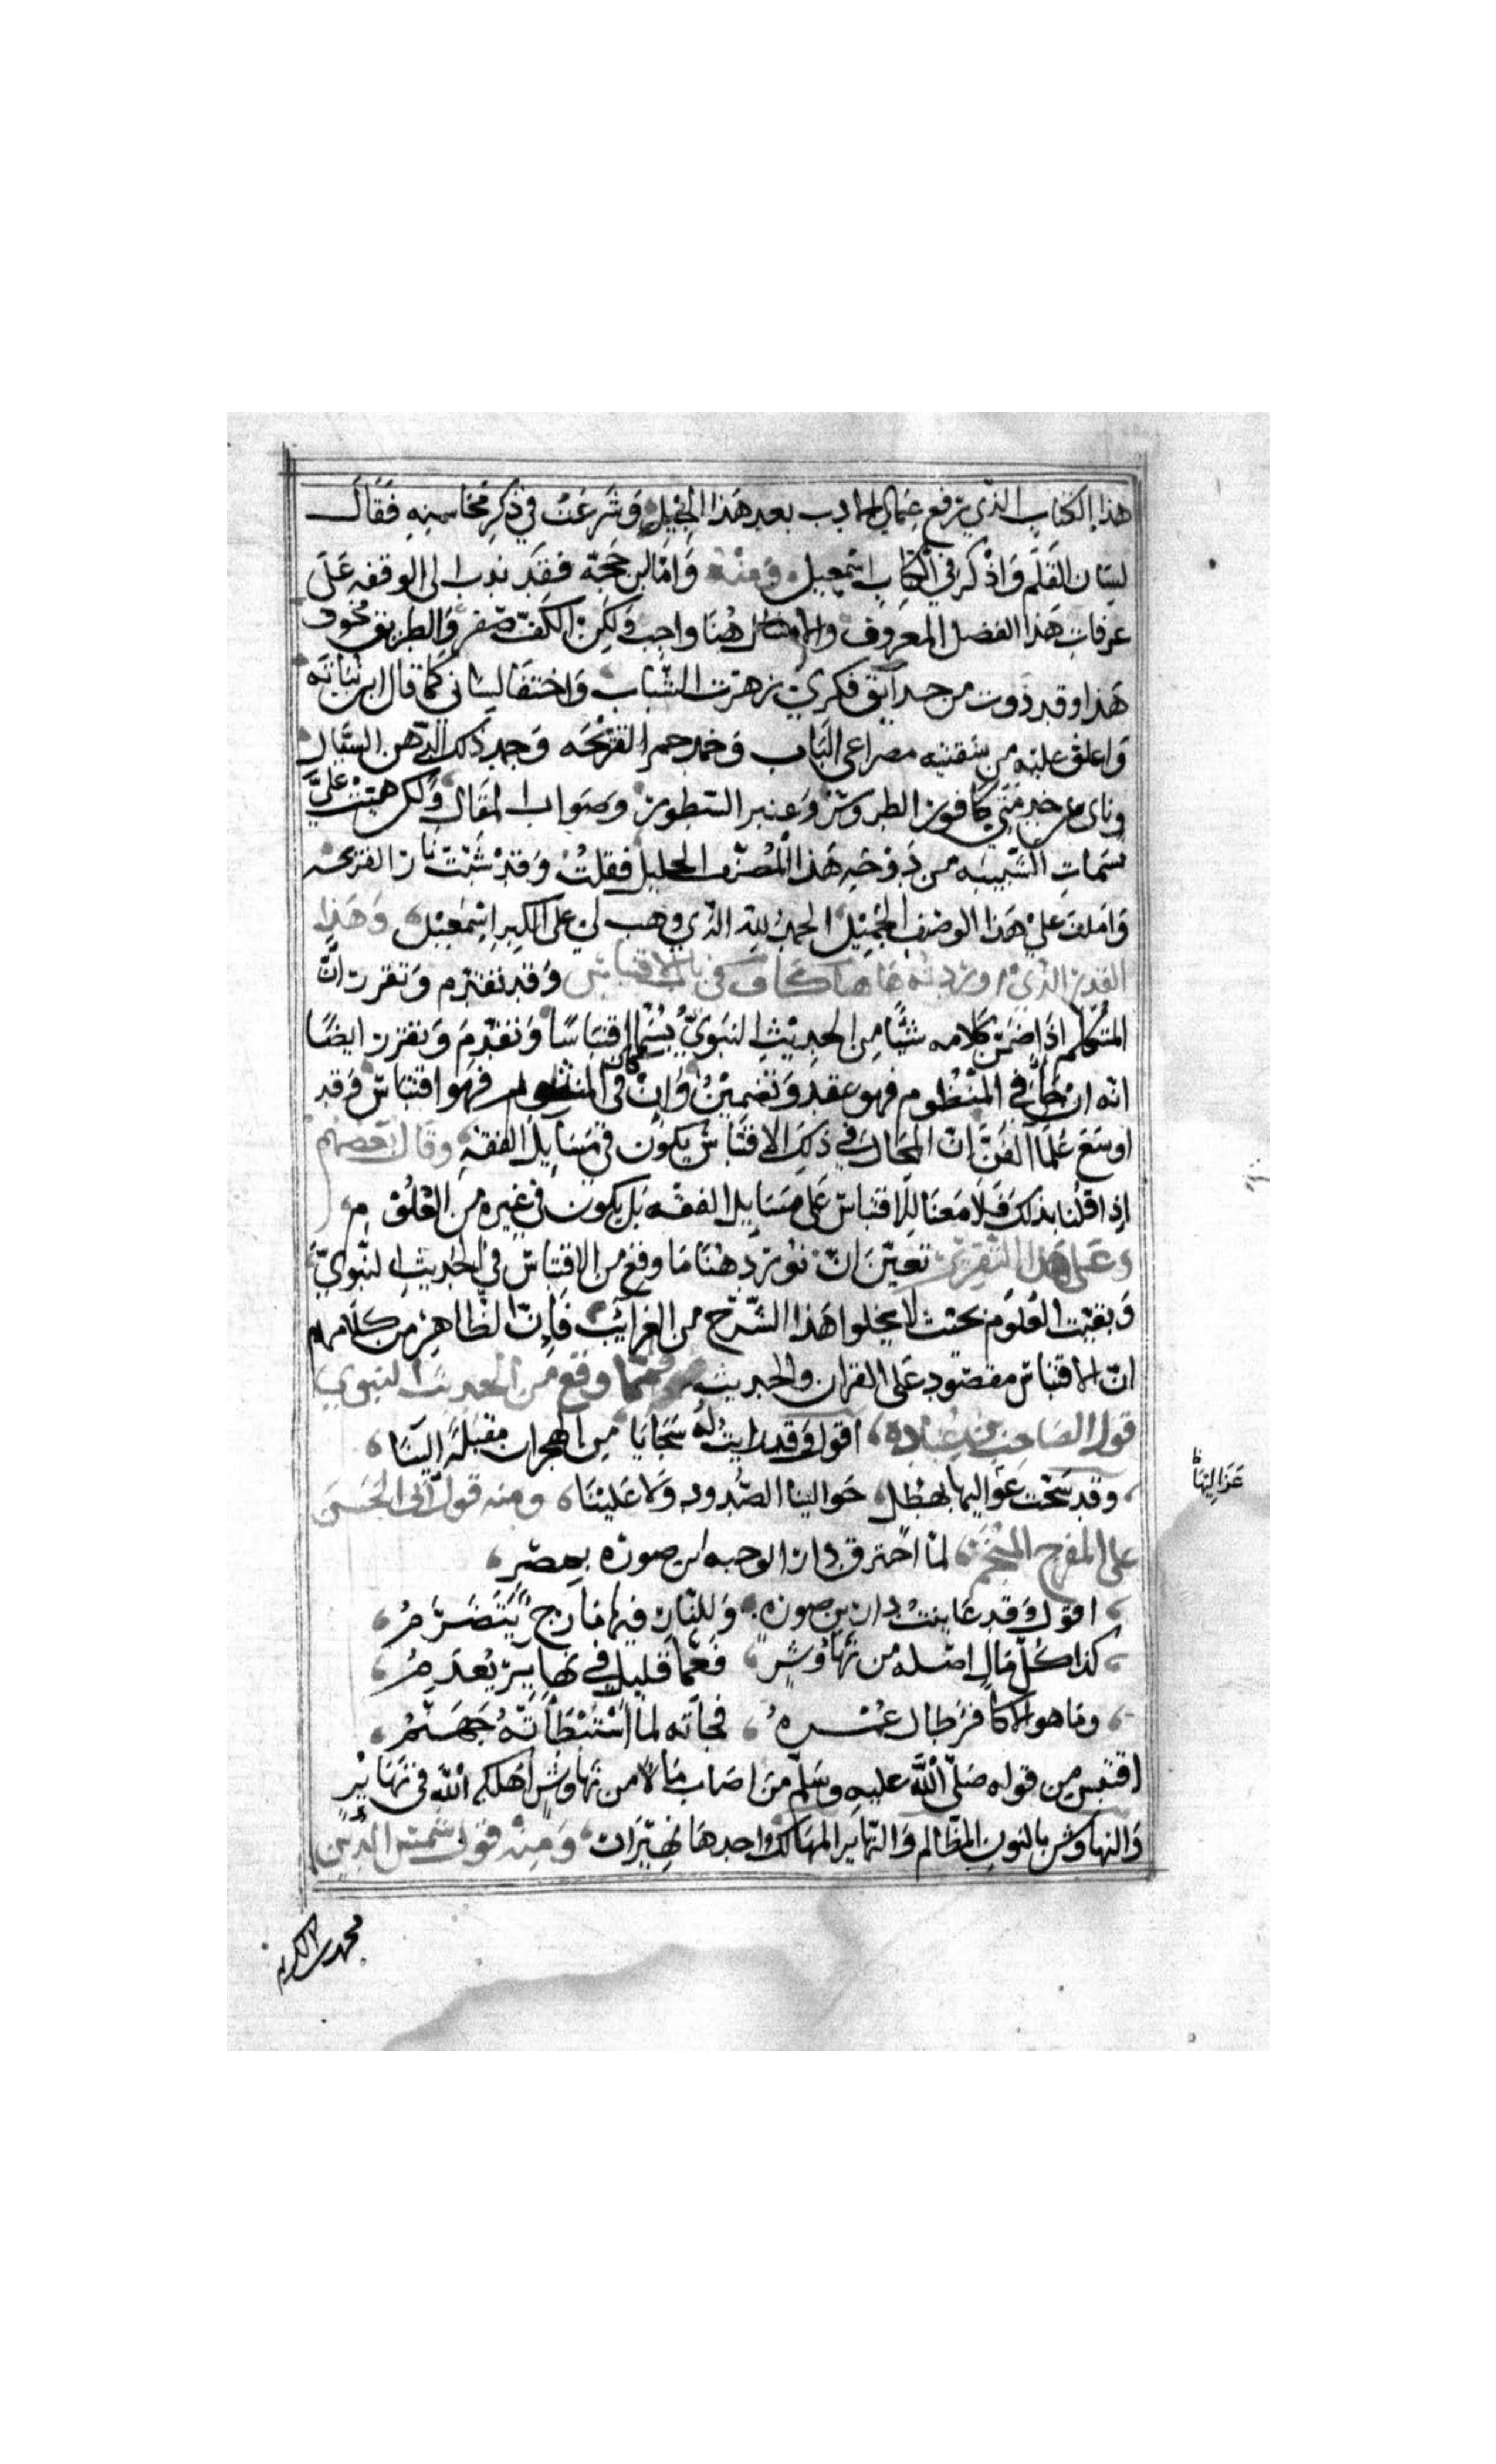 هذا الكتاب الذي يرفع عماد الادب بعد هذا الجيل وَشَرَعَتُ في ذِكرِ مَحَاسِنِهِ فَقَالَ
لسَان القَلَمِ وَاذْكر في الكِتَابِ اسْمعِيل وَمِنْهُ وَامّا ابن حَجّة فَقَد ندب الى الوقفه عَلَى
عرفاتِ هَذا الفضل المعَروف والامتثال هُنَا واجب وَلكِنْ الكَفّ صَفر وَالطريق مخوف
هَذا وقد ذوت من حدآيق فكري زهرَت الشّبَاب وَاختفَا لسَاني كَما قال ابن نبَاتَه
وَاغلق علَيْه من شفتيه مصراعى البَاب وَخمد جمر القَرْيحَه وَجمد ذَلك الذّهن السّيّال
وناى عَن خبر مَني كافور الطروسْ وَعنبر السّطورْ وصَوَاب المقَال وَلكن هبّتْ عَليَّ
نسمَاتِ الشّبيبَه من دَوحَه هَذا الْمُصنّف الجليل فقلتُ وَقَدْ شبّتْ نَار القرَيحه
وَامليت عَليْ هَذا الوَصْف الجَمْيِل الحمدُ للّه الذّي وهب لي على الكبر اسْمعيْل وَهَذا
القدر الذّي اورَدته هَا هنا كَاف في باب الاقتباس وَقد تقدّم وَتقرر انّ
المتكلم اذا ضَمّن كلامه شيًا مِن الحديثِ النبَويّ يُسْمّا اقتبَاسًا وَتقدّمَ وَتقرر ايضًا
انّه ان كَانَ في المنْظُوم فهو عقد وَتضمينْ وَانْ كَان في المنثور فهو اقتبَاسٌ وَقد
اوسَعَ عُلمَا الفَنّ انّ المجَال في ذلِك الاقتَبَاس يكون في مَسَايل الفقه وقال بَعضهم
اذا قلنَا بذلك فَلا مَعنَا للاقتبَاس عَلى مسَايل الفقْه بَل يكون في غيره من العْلُوم
وَعَلى هَذا التّقرير تعيّنَ انّ نورَد هُنَا مَا وقع من الاقتبَاس في الحديث النّبويّ
وَبقيّت العُلوم بحيث لا يخلوا هَذا الشَّرح من الغَرايَب فَاِنّ الظّاهِرْ من كلامهم
انّ الاقتبَاسْ مقصور عَلى القران والحديث فمّما وقع من الحديث النبوي
قول الصَاحِب بن عباد اقول وَقد رايتُ لهُ سَحَايَا مِن الهجران مُقبلَةً اليْنَا
وقد سَحّت عَوَاليها بهطل حَوالينا الصّدود وَلا عَليْنَا ومنه قول ابى الحَسَن
على المفرح المنجم لمّا احترق دار الوجيه ابن صوره بمصر
اقول وَقد عَاينتُ دار بن صوره وَللنّار فيها مَارج يَتَضَرَّمُ
كذا كُلّ مَالِ اصْله من نَهَاوُشٍ فَعمّا قليلٍ في نهابِرْ يُعْدَمُ
وما هو الا كافرٌ طال عُمْرهُ فجاته لمّا اسْتبْطَأتْهُ جَهَنّمُ
اقتبس من قوله صَلّى اللّه عليه وسَلّم مَن اصَاب مَالا من نهَاوُشٍ اهَلكه اللّه في نهَابِرْ
وَالنّهاوش بالنون المظَالم وَالنّهابر المهَالك واحدهَا نهبرَان وَمِنْه قول شمس الدّين
عَزَالِيهَا
محمد بن الكريم